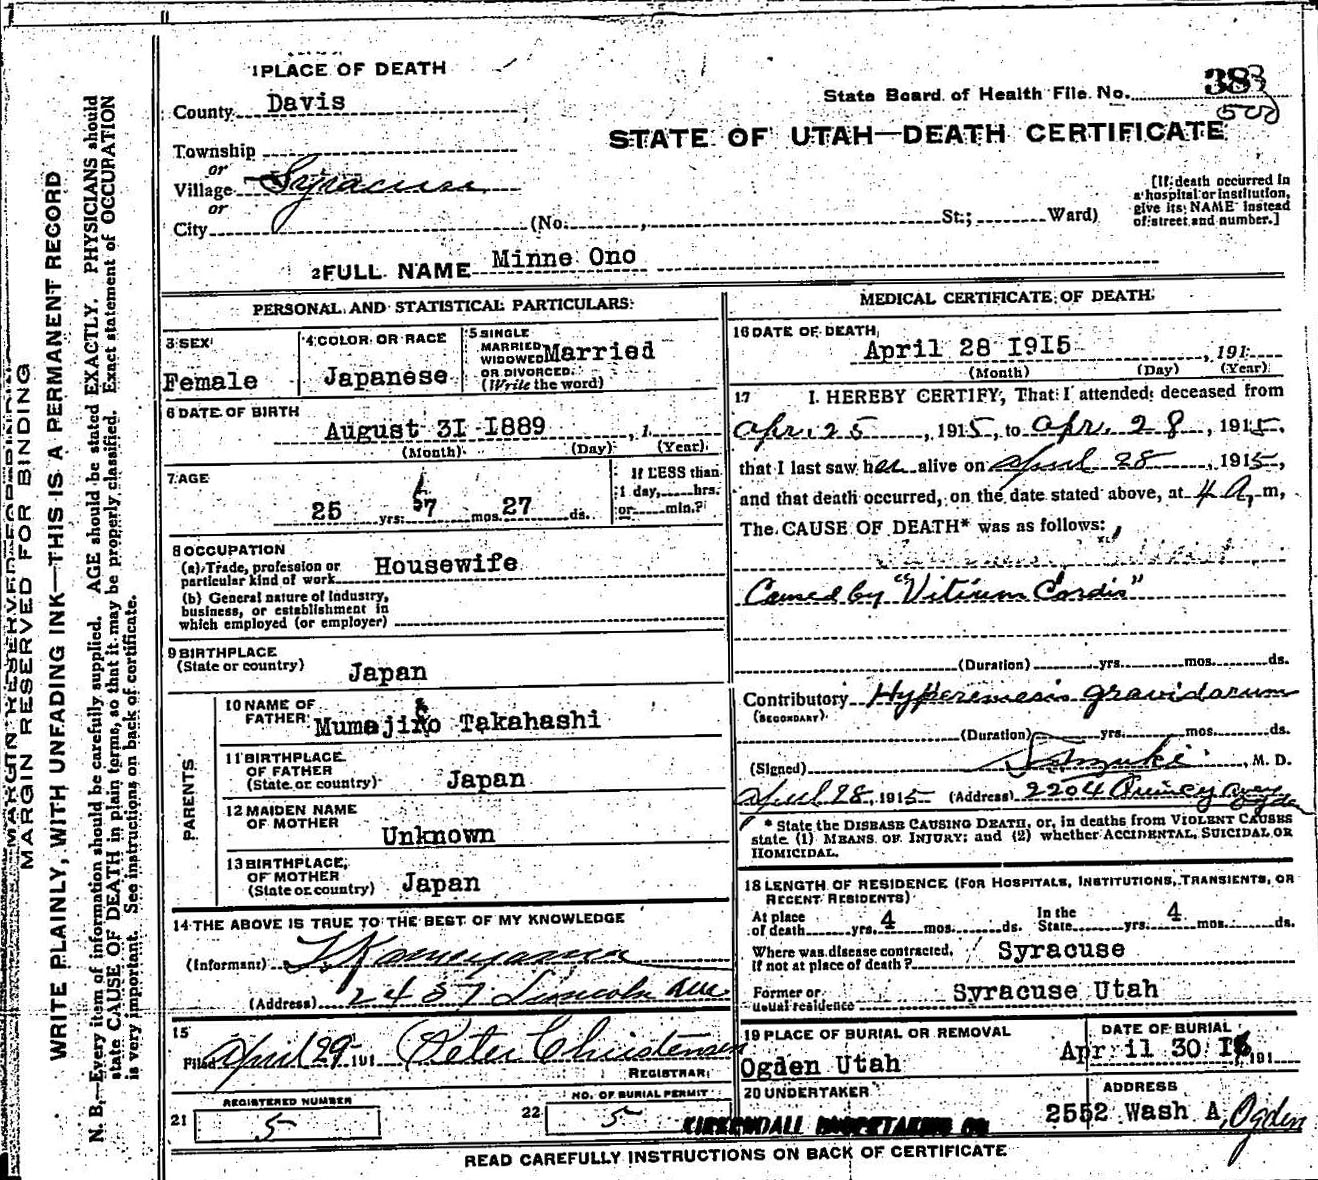 1 PLACE OF DEATH
County Davis
Township
or
Village Syracuse
or
City (No. , St.; Ward)
State Board of Health File No. 383
500
STATE OF UTAH—DEATH CERTIFICATE
[If death occurred in
a hospital or institution,
give its NAME instead
of street and number.]
2 FULL NAME Minne Ono
PERSONAL AND STATISTICAL PARTICULARS
3 SEX
Female
4 COLOR OR RACE
Japanese
5 SINGLE
MARRIED
WIDOWED Married
OR DIVORCED
(Write the word)
6 DATE OF BIRTH
August 31 1889 , 1
(Month) (Day) (Year)
7 AGE
25 yrs. 7 mos. 27 ds.
If LESS than
1 day, hrs.
or min.?
8 OCCUPATION
(a) Trade, profession or
particular kind of work Housewife
(b) General nature of industry,
business, or establishment in
which employed (or employer)
9 BIRTHPLACE
(State or country)
Japan
PARENTS
10 NAME OF
FATHER Takahashi
11 BIRTHPLACE
OF FATHER
(State or country) Japan
12 MAIDEN NAME
OF MOTHER
Unknown
13 BIRTHPLACE
OF MOTHER
(State or country) Japan
14 THE ABOVE IS TRUE TO THE BEST OF MY KNOWLEDGE
(Informant) Kameyama
(Address) 2437 Lincoln Ave
15
Filed April 29 191 Peter Christensen
REGISTRAR
REGISTERED NUMBER
21 5
NO. OF BURIAL PERMIT
22 5
MEDICAL CERTIFICATE OF DEATH
16 DATE OF DEATH
April 28 1915 , 191
(Month) (Day) (Year)
17 I HEREBY CERTIFY, That I attended deceased from
Apr. 25 , 1915, to Apr. 28 , 1915,
that I last saw her alive on April 28 , 1915,
and that death occurred, on the date stated above, at 4 A. m,
The CAUSE OF DEATH* was as follows:
Caused by "Vitium Cordis"
(Duration) yrs. mos. ds.
Contributory Hyperemesis gravidarum
(SECONDARY)
(Duration) yrs. mos. ds.
(Signed) Suzuki , M. D.
April 28, 1915 (Address) 2204 Quincy Ave
Ogden
* State the DISEASE CAUSING DEATH, or, in deaths from VIOLENT CAUSES
state (1) MEANS OF INJURY; and (2) whether ACCIDENTAL, SUICIDAL OR
HOMICIDAL.
18 LENGTH OF RESIDENCE (FOR HOSPITALS, INSTITUTIONS, TRANSIENTS, OR
RECENT RESIDENTS)
At place
of death yrs. 4 mos. ds. In the
State yrs. 4 mos. ds.
Where was disease contracted,
if not at place of death? Syracuse
Former or
usual residence Syracuse Utah
19 PLACE OF BURIAL OR REMOVAL
Ogden Utah
DATE OF BURIAL
April 30 191
20 UNDERTAKER
KIRKENDALL UNDERTAKING CO.
ADDRESS
2552 Wash A, Ogden
READ CAREFULLY INSTRUCTIONS ON BACK OF CERTIFICATE
MARGIN RESERVED FOR BINDING
WRITE PLAINLY, WITH UNFADING INK—THIS IS A PERMANENT RECORD
N. B.—Every item of information should be carefully supplied. AGE should be stated EXACTLY. PHYSICIANS should
state CAUSE OF DEATH in plain terms, so that it may be properly classified. Exact statement of OCCUPATION
is very important. See instructions on back of certificate.